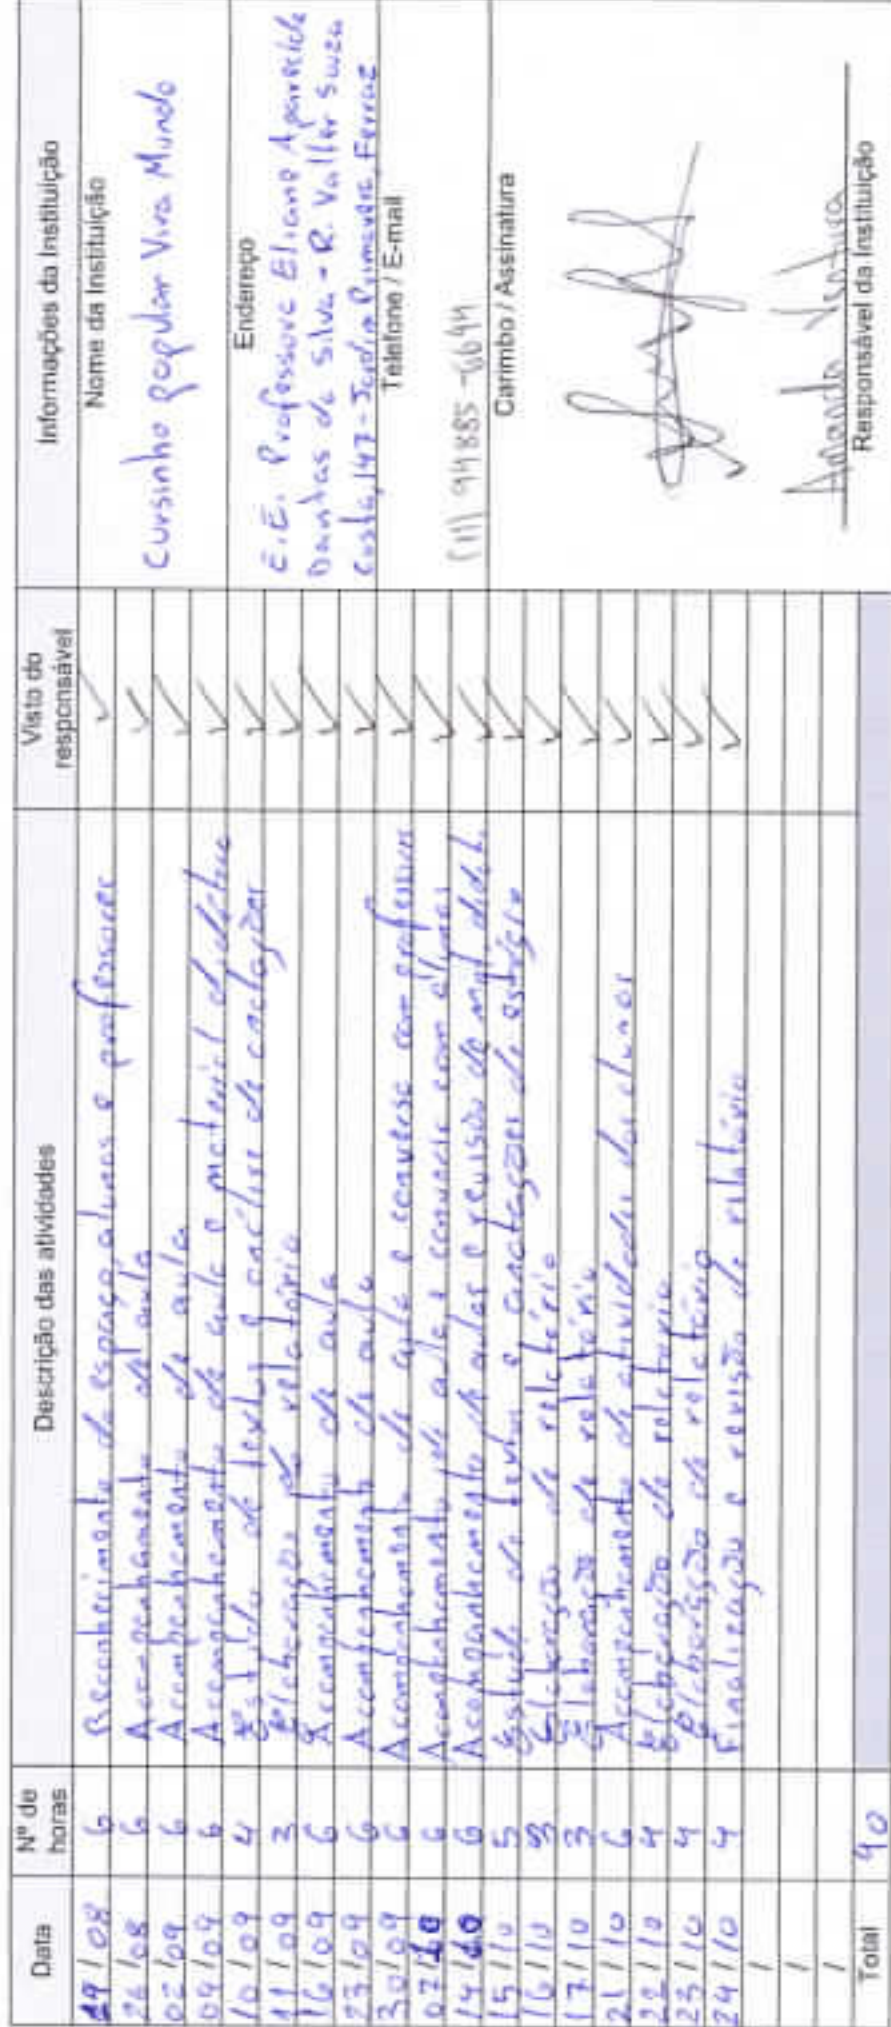 Data Nº de horas Descrição das atividades Visto do responsável Informações da Instituição
19/08 6 Reconhecimento do espaço, alunos e professores ✓
26/08 6 Acompanhamento de aula ✓
02/09 6 Acompanhamento de aula ✓
09/09 6 Acompanhamento de aula e material didático ✓
10/09 4 Estudo de textos e análise de anotações ✓
11/09 3 Elaboração do relatório ✓
16/09 6 Acompanhamento de aula ✓
23/09 6 Acompanhamento de aula ✓
30/09 6 Acompanhamento de aula e conversa com professores ✓
07/10 6 Acompanhamento de aula e conversa com alunos ✓
14/10 6 Acompanhamento de aulas e revisão de mat. didát. ✓
15/10 5 Estudo de textos e anotações de estágio ✓
16/10 3 Elaboração de relatório ✓
17/10 3 Elaboração de relatório ✓
21/10 6 Acompanhamento de atividades dos alunos ✓
22/10 4 Elaboração de relatório ✓
23/10 4 Elaboração de relatório ✓
24/10 4 Finalização e revisão do relatório ✓
/
/
/
Total 90
Nome da Instituição
Cursinho popular Viva Mundo
Endereço
E.E. Professora Eliane Aparecida
Dantas da Silva - R. Valter Suza
Costa, 147 - Jardim Primavera, Ferraz
Telefone / E-mail
(11) 94885-6644
Carimbo / Assinatura
Amanda Ventura
Responsável da Instituição